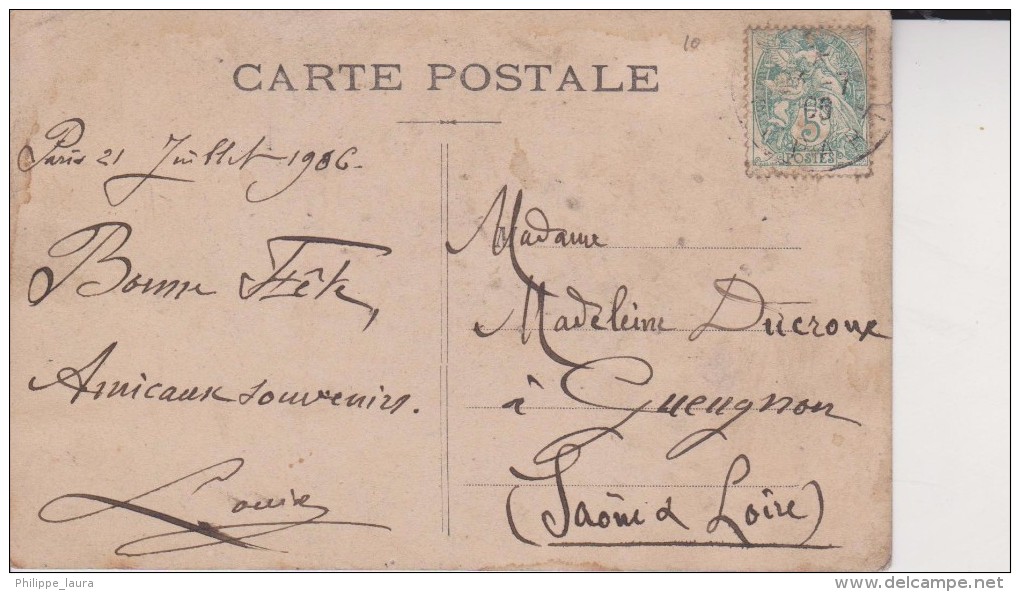 10
CARTE POSTALE
5
POSTES
Paris 21 Juillet 1906.
Bonne Fête,
Amicaux souvenirs.
Louis
Madame
Madeleine Ducroux
à Gueugnon
(Saône & Loire)
Philippe_laura
delcampe.net